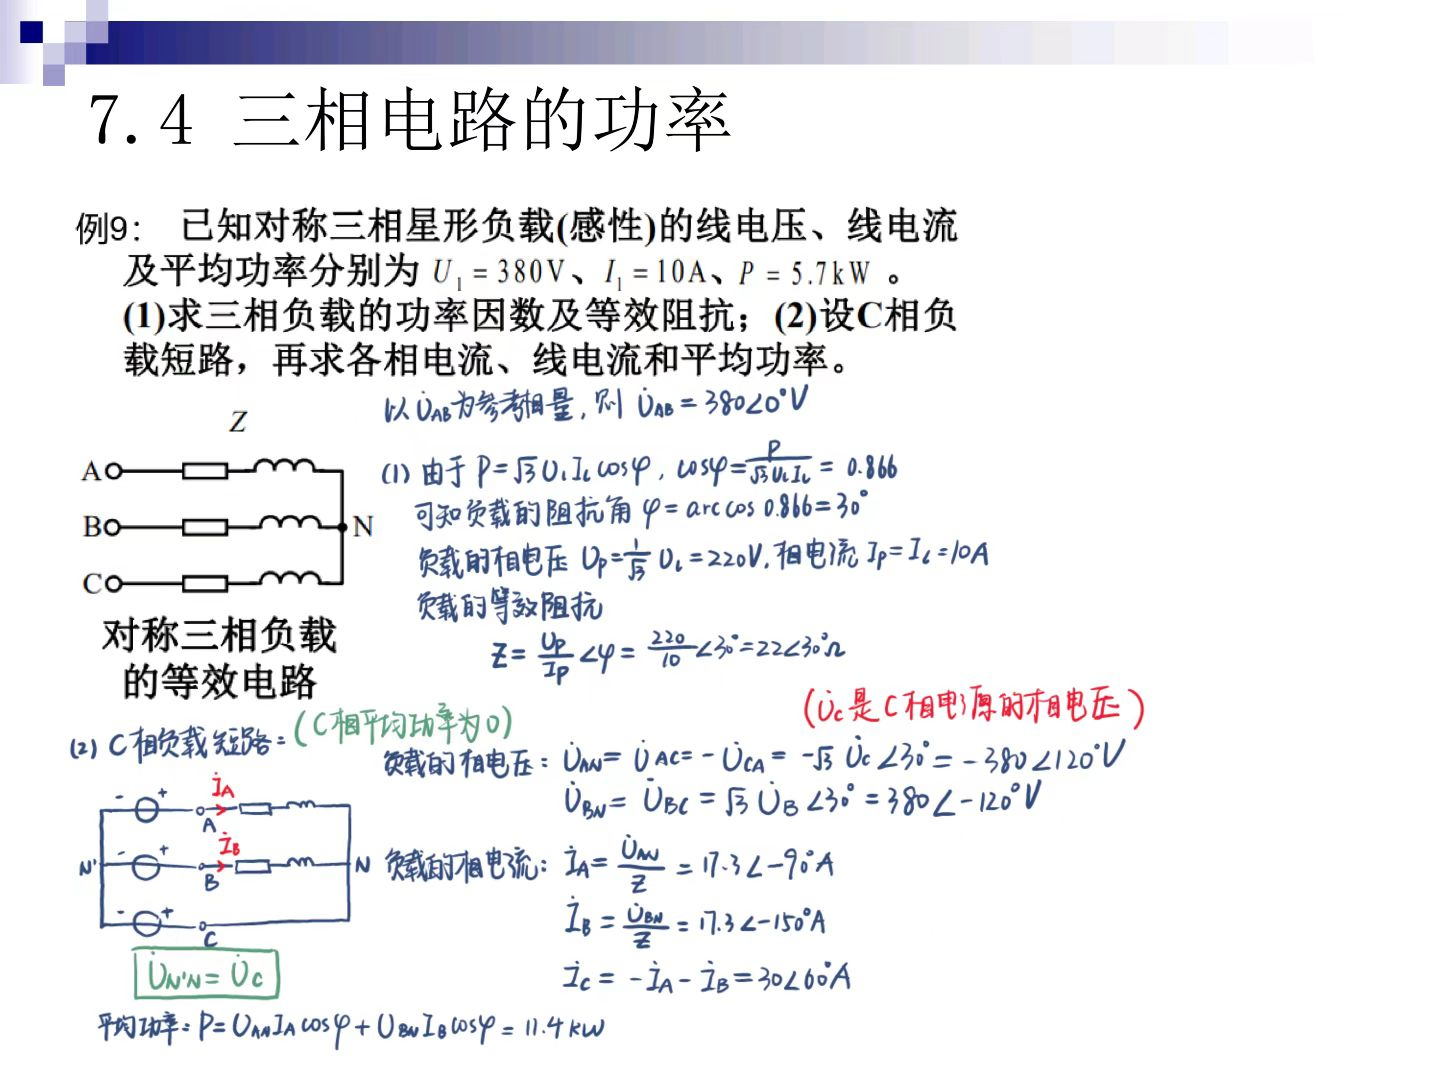 7.4 三相电路的功率
例9： 已知对称三相星形负载(感性)的线电压、线电流
及平均功率分别为 U₁ = 380V、I₁ = 10A、P = 5.7kW 。
(1)求三相负载的功率因数及等效阻抗；(2)设C相负
载短路，再求各相电流、线电流和平均功率。
以 U̇AB为参考相量，则 U̇AB = 380∠0°V
Z
A
B
C
N
对称三相负载
的等效电路
(1) 由于 P=√3 ULIL cosφ，cosφ=P/(√3ULIL) = 0.866
可知负载的阻抗角 φ = arc cos 0.866=30°
负载的相电压 Up=1/√3 UL=220V，相电流 Ip=IL=10A
负载的等效阻抗
Z= Up/Ip ∠φ = 220/10 ∠30°=22∠30°Ω
(U̇c是C相电源的相电压)
(2) C相负载短路：(C相平均功率为0)
负载的相电压：U̇AN= U̇AC= -U̇CA= -√3 U̇c∠30°= -380∠120°V
U̇BN= U̇BC = √3 U̇B∠30° = 380∠-120°V
- + İA
A
- + İB
B
- +
C
N'
N
负载的相电流：İA= U̇AN/Z = 17.3∠-90°A
İB = U̇BN/Z = 17.3∠-150°A
İC = -İA - İB = 30∠60°A
U̇N'N = U̇C
平均功率：P=UANIA cosφ + UBNIB cosφ = 11.4kW